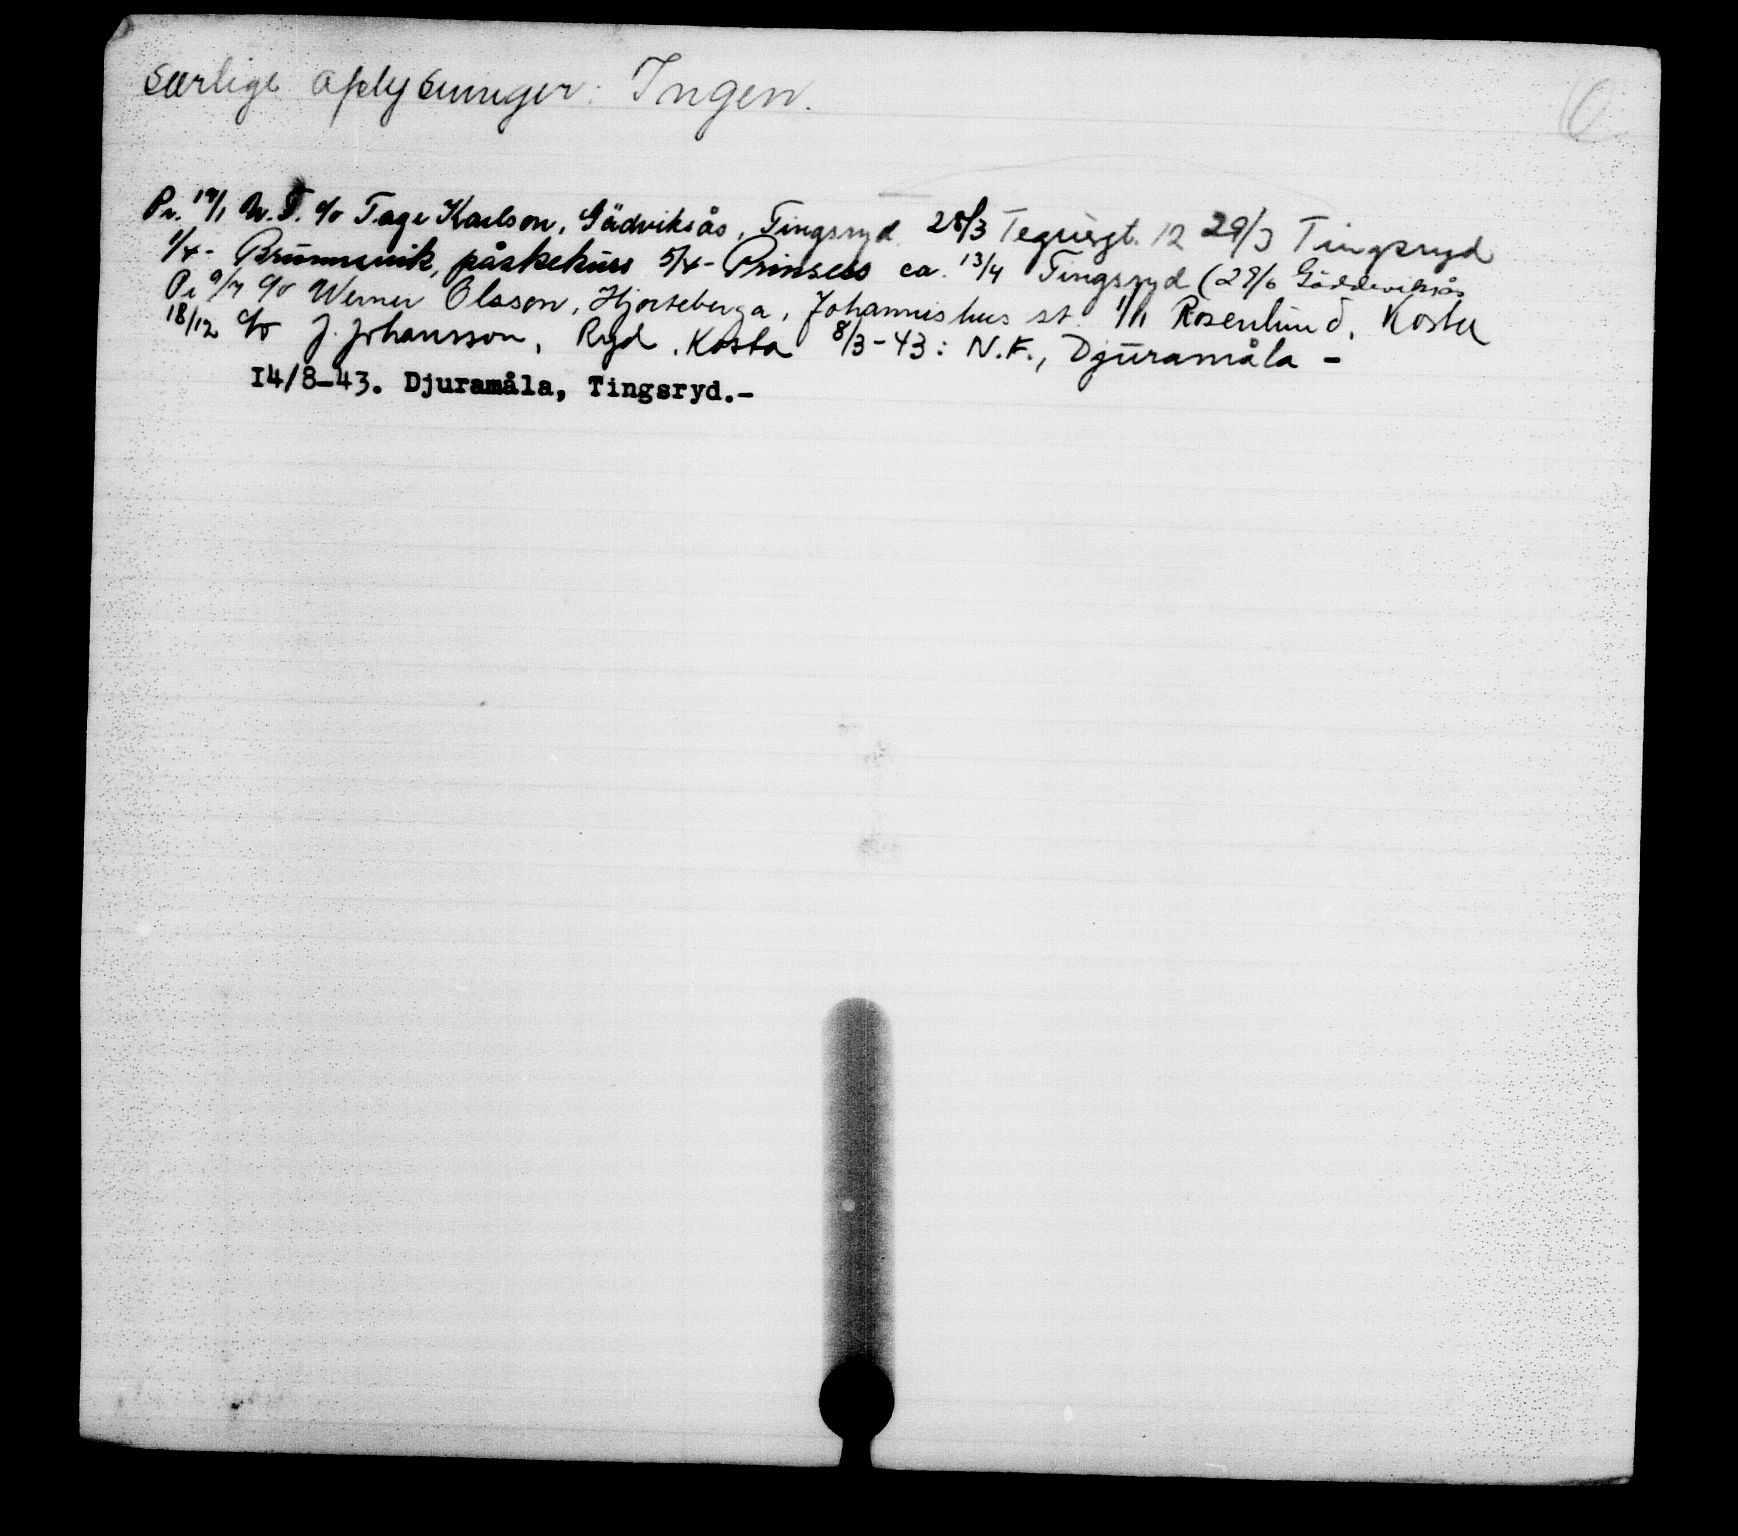 Særlige oplysninger: Ingen.
Pr. 19/1 N.T. c/o Tage Karlson, Gädviksås, Tingsryd 28/3 Tegnérgt. 12 29/3 Tingsryd
1/4 - Brunnsvik, påskekurs 5/4 - Prinsess ca. 13/4 Tingsryd (29/6 Gäddeviksås
Pr 9/7 c/o Werner Olsson, Hjorteberga, Johannishus st. 1/11 Rosenlund, Kosta
18/12 c/o J. Johansson, Ryd, Kosta 8/3-43: N.F., Djuramåla -
14/8-43. Djuramåla, Tingsryd.-